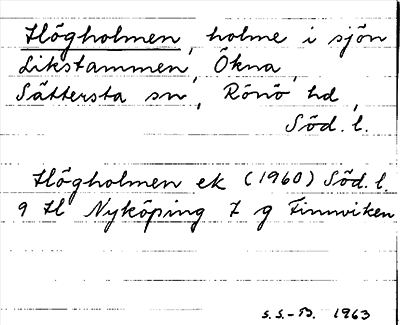 Högholmen, holme i sjön
Likstammen, Ökna,
Sättersta sn, Rönö hd,
Söd. l.
Högholmen ek (1960) Söd. l.
9 H Nyköping 7 g Finnviken
S.S.-B. 1963